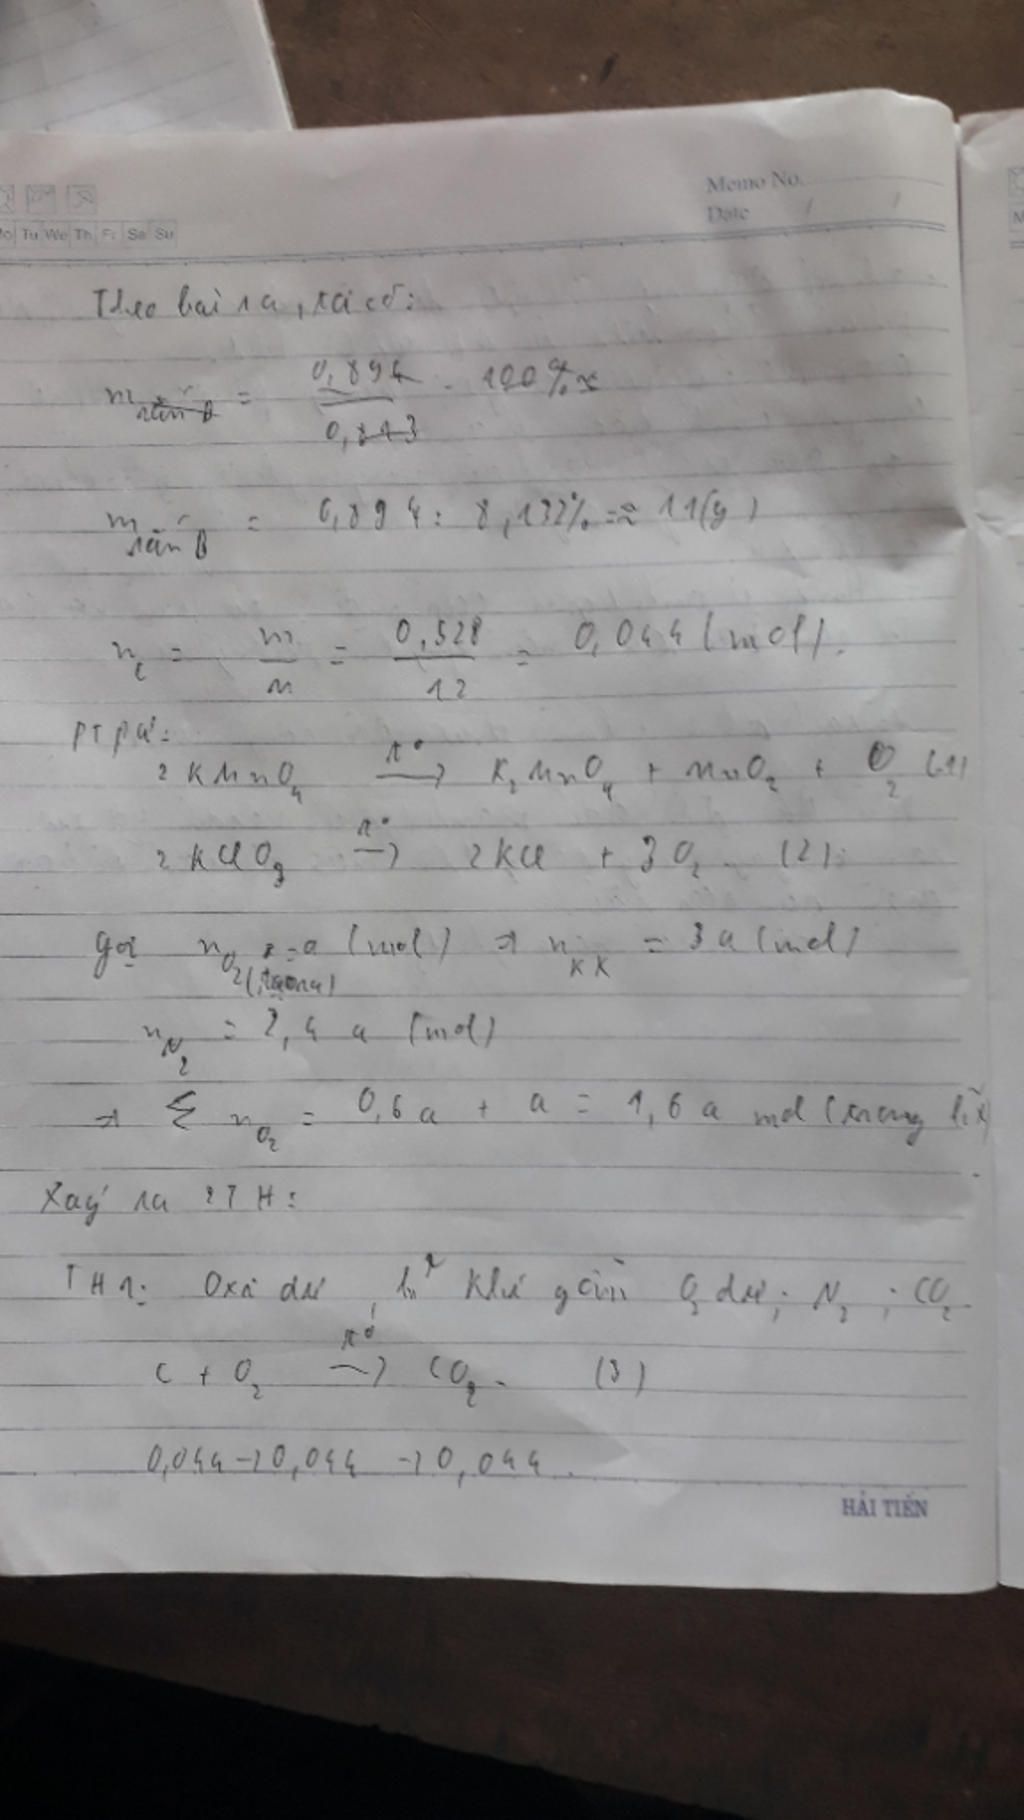 Memo No.
Date / /
Mo Tu We Th Fr Sa Su
Theo bài ra, ta có:
m rắn B = 0,894 / 0,813 . 100%
m rắn B = 0,894 : 8,132% = ≈ 11(g)
n_C = m/M = 0,528/12 = 0,044 (mol).
PTPƯ:
2 KMnO₄ →(t°) K₂MnO₄ + MnO₂ + O₂ (1)
2 KClO₃ →(t°) 2KCl + 3O₂ (2)
Gọi n_O₂ (tạo ra) = a (mol) → n_KK = 3a (mol)
n_N₂ = 2,4 a (mol)
→ Σ n_O₂ = 0,6a + a = 1,6a mol (trong
Xảy ra 2TH:
TH1: Oxi dư, h² khí gồm O₂ dư; N₂; CO₂
C + O₂ →(t°) CO₂. (3)
0,044 → 0,044 → 0,044.
HẢI TIẾN